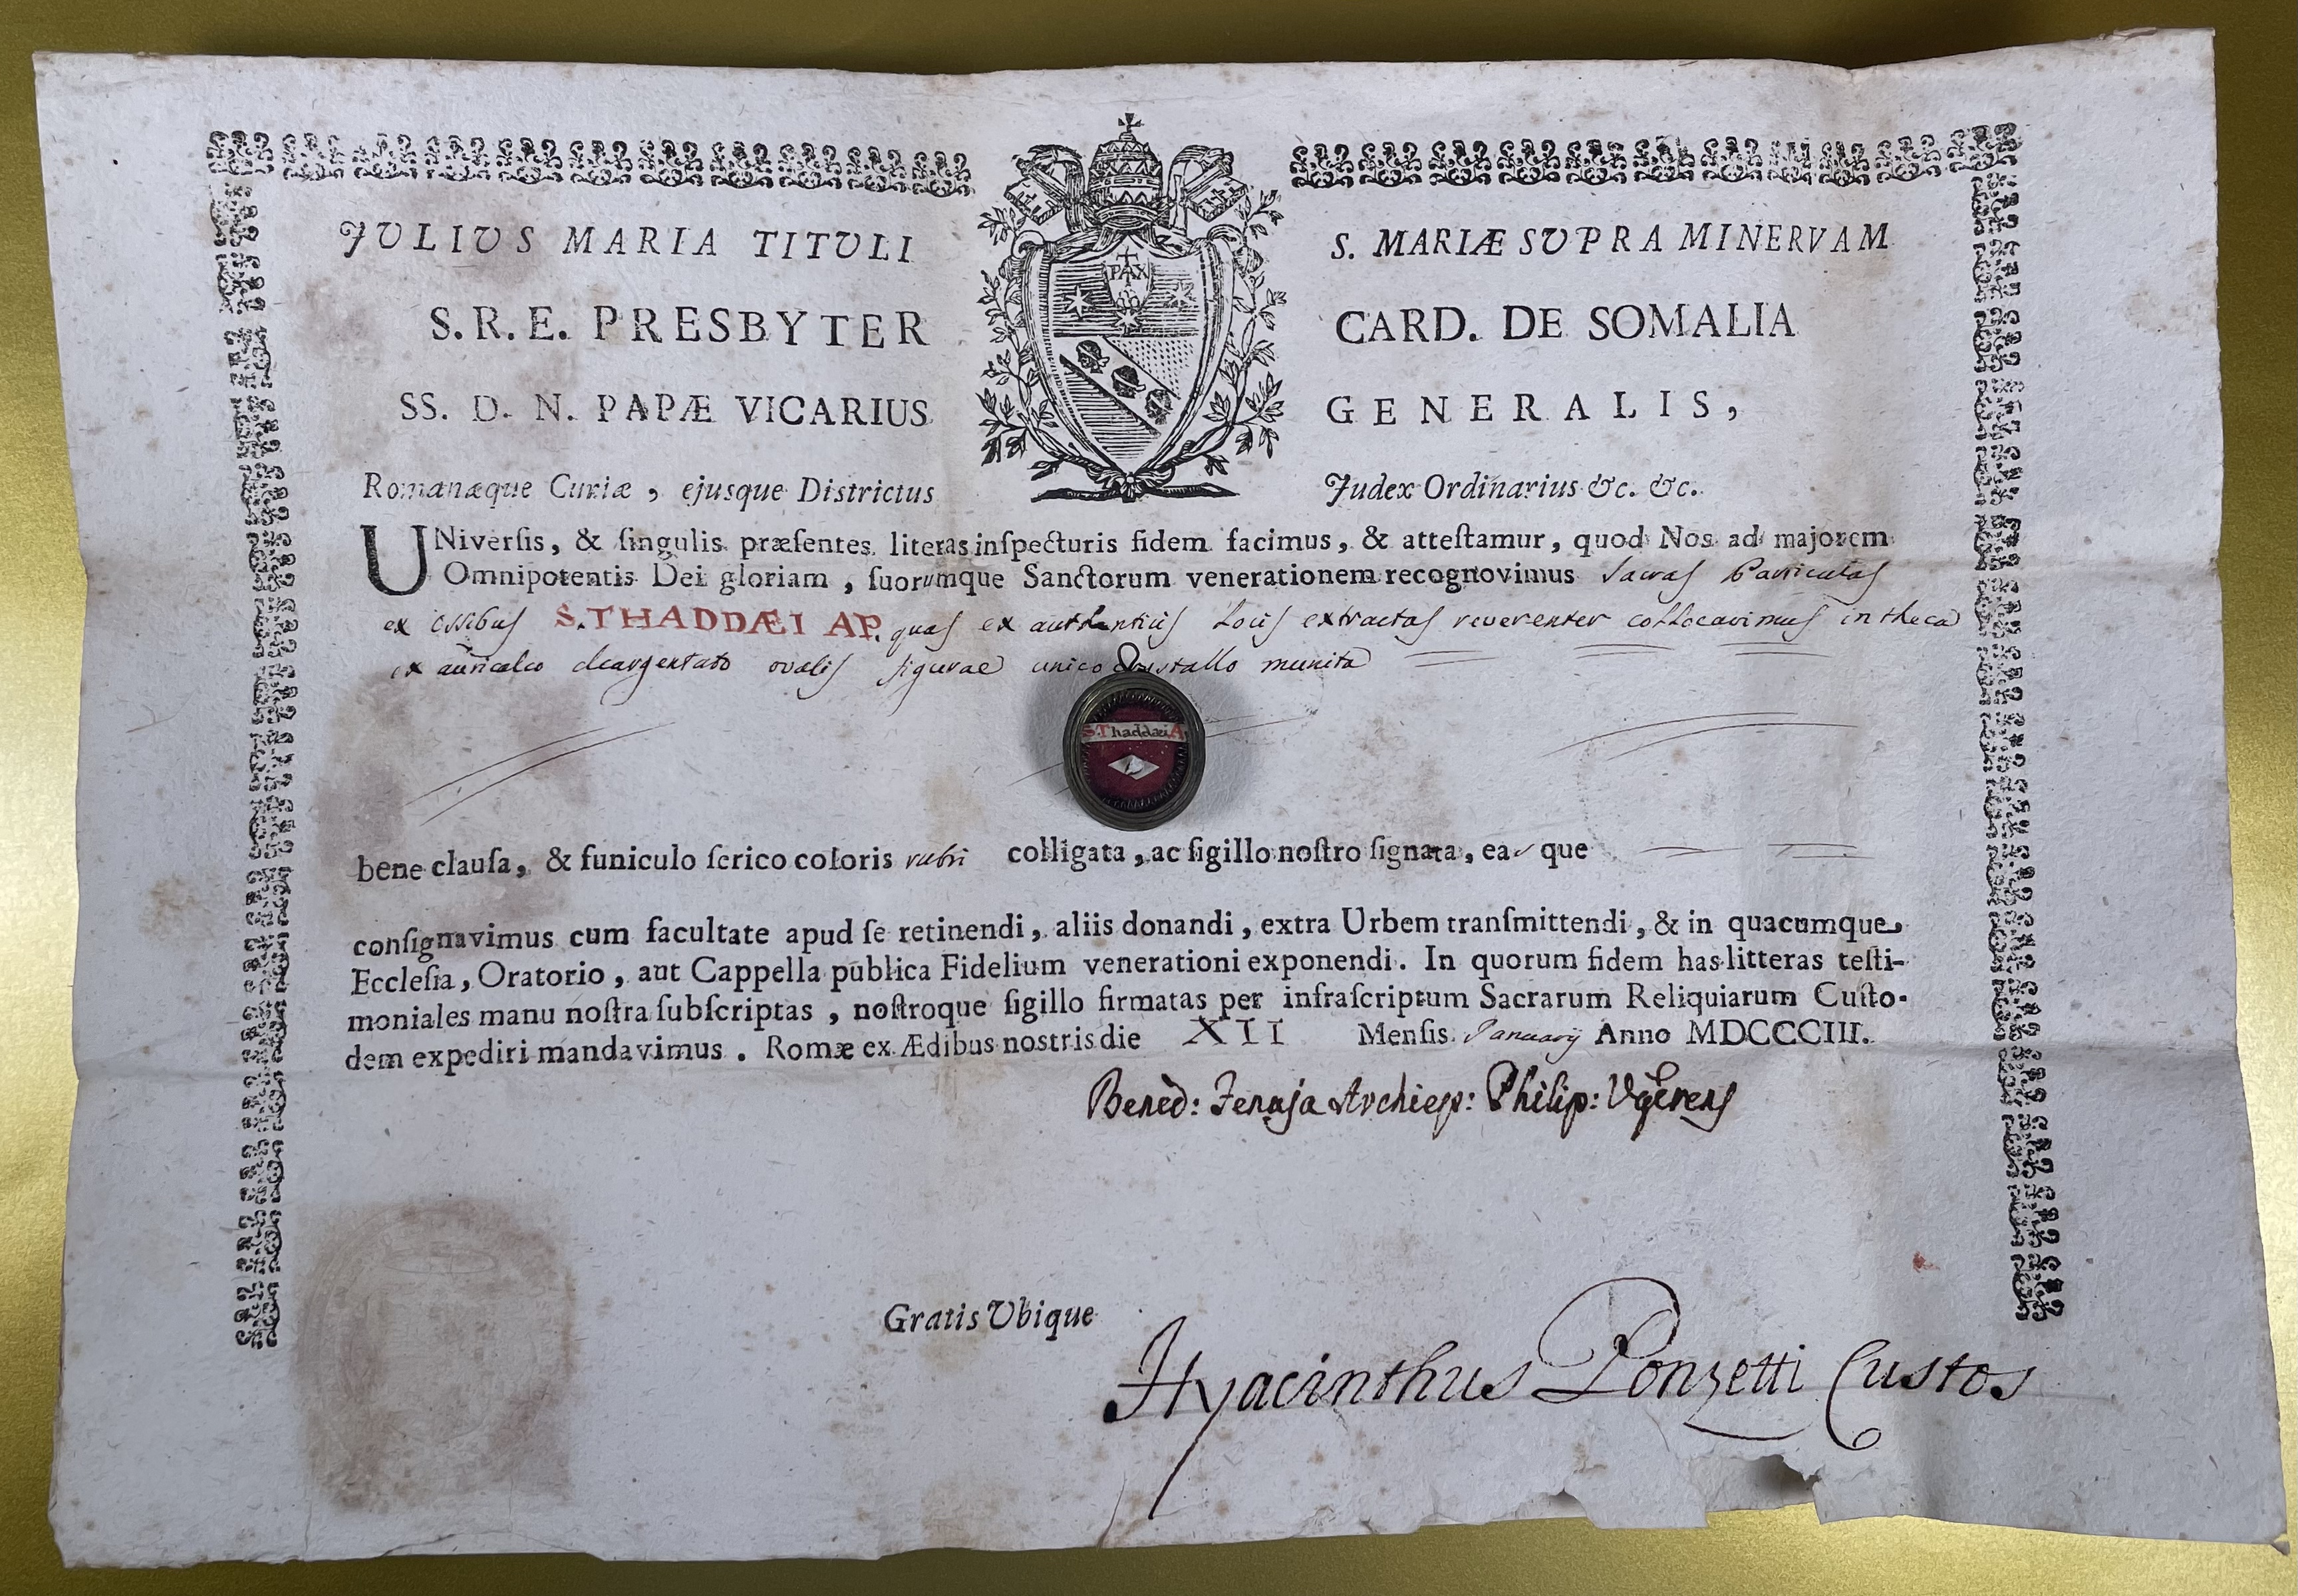 JULIUS MARIA TITULI S. MARIÆ SUPRA MINERVAM
PAX
S.R.E. PRESBYTER CARD. DE SOMALIA
SS. D. N. PAPÆ VICARIUS GENERALIS,
Romanæque Curiæ, ejusque Districtus Judex Ordinarius &c. &c.
UNiversis, & singulis præsentes literas inspecturis fidem facimus, & attestamur, quod Nos ad majorem
Omnipotentis Dei gloriam, suorumque Sanctorum venerationem recognovimus sacras Particulas
ex ossibus S. THADDÆI AP. quas ex authenticis locis extractas reverenter collocavimus in theca
ex auricalco deargentato ovalis figurae unico crystallo munita
S. Thaddæi A
bene clausa, & funiculo serico coloris rubri colligata, ac sigillo nostro signata, eas que
consignavimus cum facultate apud se retinendi, aliis donandi, extra Urbem transmittendi, & in quacumque
Ecclesia, Oratorio, aut Cappella publica Fidelium venerationi exponendi. In quorum fidem has litteras testi-
moniales manu nostra subscriptas, nostroque sigillo firmatas per infrascriptum Sacrarum Reliquiarum Custo-
dem expediri mandavimus. Romæ ex Ædibus nostris die XII Mensis Januarij Anno MDCCCIII.
Bened: Fenaja Archiep: Philip: Vgerens
Gratis Ubique
Hyacinthus Ponzetti Custos